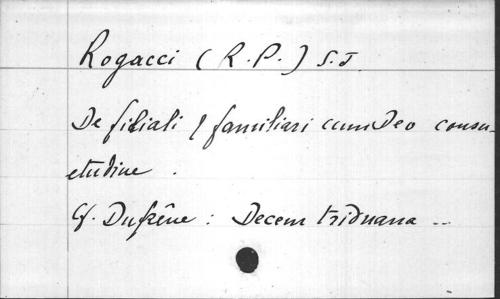 Rogacci (R.P.) S.J.
De filiali & familiari cum Deo consu-
etudine.
Cf. Dufrêne : Decem triduana ...